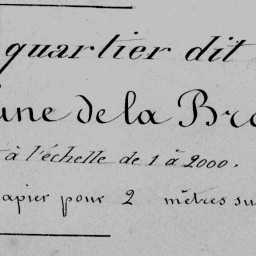 quartier dit
une de la Br
à l'échelle de 1 à 2000.
apier pour 2 mètres su